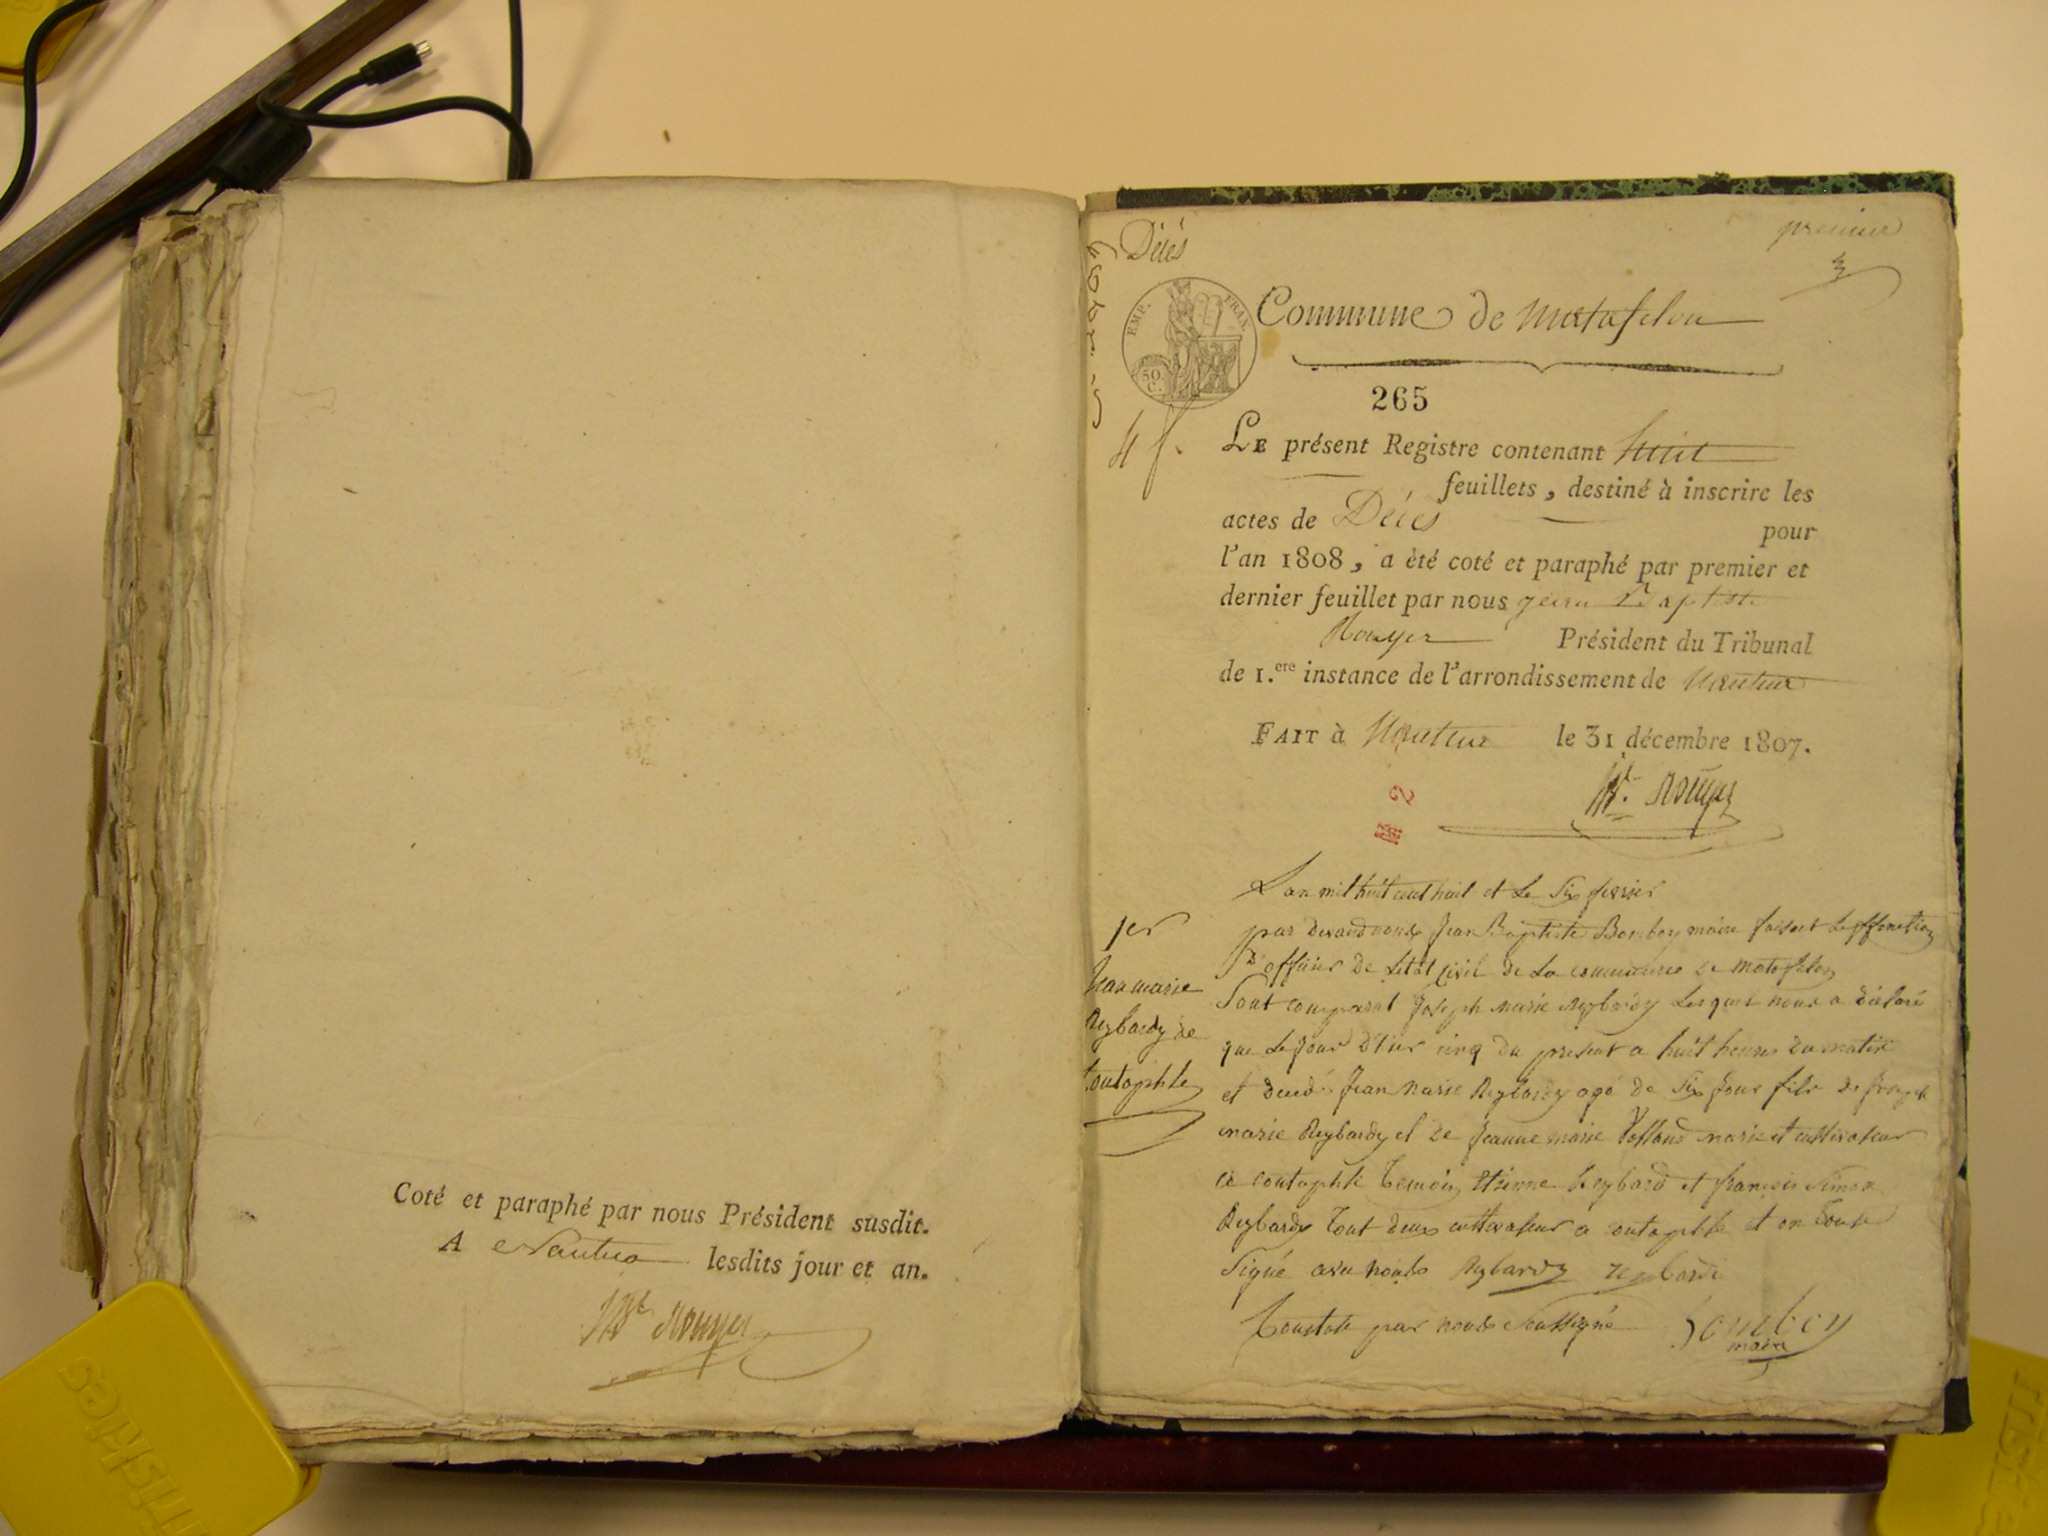 Coté et paraphé par nous Président susdit.
A Nantua lesdits jour et an.
JBte Rouyer
Décès
premier
EMP. FRAN.
50 C.
Commune de Matafelon
265
4 f.
LE présent Registre contenant huit
feuillets, destiné à inscrire les
actes de Décès pour
l'an 1808, a èté coté et paraphé par premier et
dernier feuillet par nous jean Baptiste
Rouyer Président du Tribunal
de 1.ere instance de l'arrondissement de Nantua
FAIT à Nantua le 31 décembre 1807.
JBt. Rouyer
2
1er
Jean marie
Reybardy de
Coutophle
L an mil huit cent huit et Le Six fevrier
par devand nous Jean Baptiste Bomboy maire faisant
D'officier De Letat Civil de La commune de matafelon
Sont comparut Joseph marie Reybardy Lesquel nous a déclaré
que Le Jour D'hier cinq du present a huit heures du matin
et décédé Jean Marie Reybardy agé de Six Jour fils de Joseph
marie Reybardy et de Jeanne marie marie et cultivateur
a coutophle temoin Etienne Reybard et françois Simon
Reybardy tout deux cultivateur a coutophle et on
Signé avec nous Reybardy reybardi
Constaté par nous Soussigné Bomboy
maire